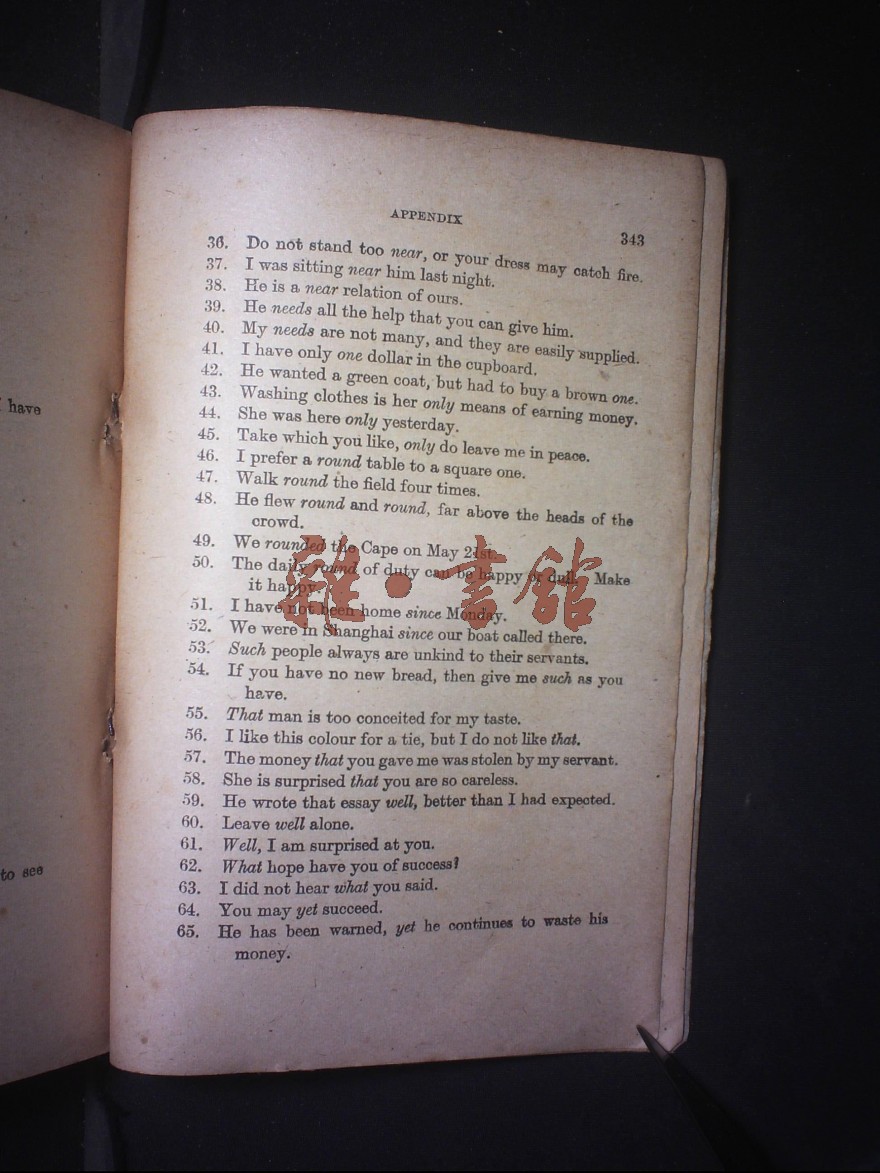 have
to see
APPENDIX
343
36. Do not stand too near, or your dress may catch fire.
37. I was sitting near him last night.
38. He is a near relation of ours.
39. He needs all the help that you can give him.
40. My needs are not many, and they are easily supplied.
41. I have only one dollar in the cupboard.
42. He wanted a green coat, but had to buy a brown one.
43. Washing clothes is her only means of earning money.
44. She was here only yesterday.
45. Take which you like, only do leave me in peace.
46. I prefer a round table to a square one.
47. Walk round the field four times.
48. He flew round and round, far above the heads of the
crowd.
49. We rounded the Cape on May 21st.
50. The daily round of duty can be happy or dull. Make
it happy.
51. I have not been home since Monday.
52. We were in Shanghai since our boat called there.
53. Such people always are unkind to their servants.
54. If you have no new bread, then give me such as you
have.
55. That man is too conceited for my taste.
56. I like this colour for a tie, but I do not like that.
57. The money that you gave me was stolen by my servant.
58. She is surprised that you are so careless.
59. He wrote that essay well, better than I had expected.
60. Leave well alone.
61. Well, I am surprised at you.
62. What hope have you of success?
63. I did not hear what you said.
64. You may yet succeed.
65. He has been warned, yet he continues to waste his
money.
雜·書館